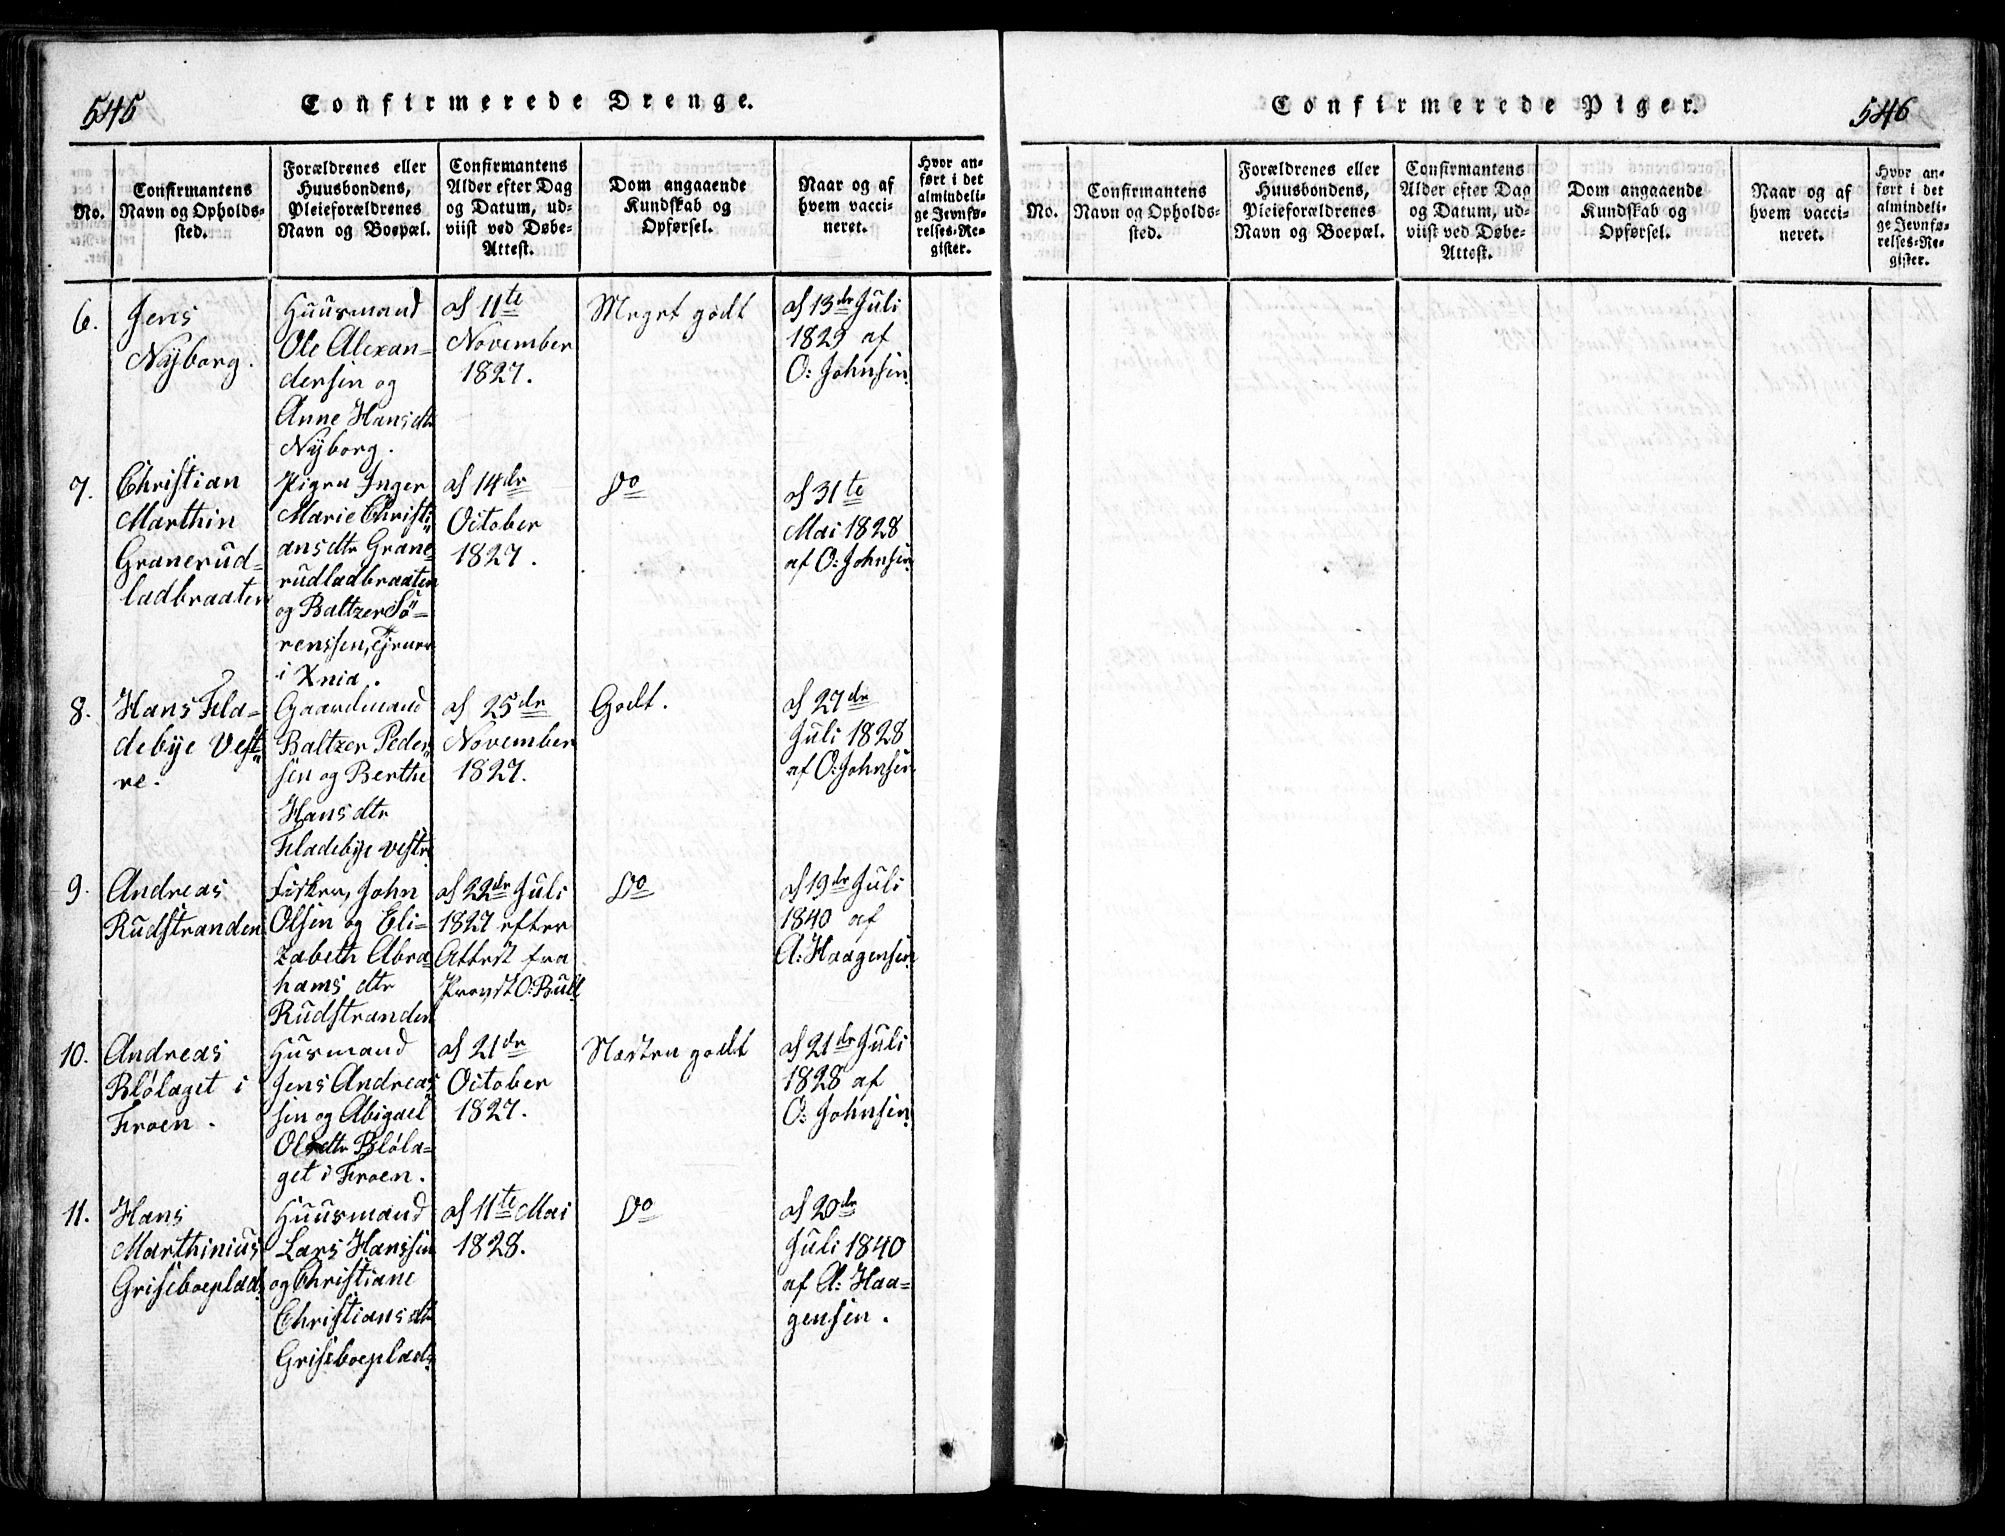 545
Confirmerede Drenge.
No.
Confirmantens
Navn og Opholds-
sted.
Forældrenes eller
Huusbondens,
Pleieforældrenes
Navn og Boepæl.
Confirmantens
Alder efter Dag
og Datum, ud-
viist ved Døbe-
Attest.
Dom angaaende
Kundskab og
Opførsel.
Naar og af
hvem vacci-
neret.
Hvor an-
ført i det
almindeli-
ge Jevnfø-
relses-Re-
gister.
6.
Jens
Nÿborg.
Huusmand
Ole Alexan=
dersen og
Anne Hansdtr
Nÿborg.
af 11te
November
1827.
Meget godt
af 13de Juli
1829 af
O: Johnsen
7.
Christian
Marthin
Granerud-
ladbraaten
Pigen Inger
Marie Christi
ansdtr Grane
rudladbraaten
og Baltzer Sö=
renssen,
i Xnia.
af 14de
October
1827.
Do
af 31te
Mai 1828
af O: Johnsen
8.
Hans Fla=
debÿe Vest
re.
Gaardmand
Baltzer Peder
sen og Berthe
Hansdtr
Fladebÿe vestre
af 25de
November
1827.
Godt.
af 27de
Juli 1828
af O: Johnsen
9.
Andreas
Rudstranden
Fisker, John
Olsen og Eli=
zabeth Abra=
hams dtr
Rudstranden
af 22de Juli
1827 efter
Attest fra
Provst O: Bull
Do
af 19de Juli
1840 af
A: Haagensen
10.
Andreas
Blölaget i
Froen.
Husmand
Jens Andreas
sen og Abigael
Olsdtr Blöla=
get i Froen.
af 21de
October
1827.
Næsten godt
af 21de Juli
1828 af
O: Johnsen
11.
Hans
Marthinius
Griseboeplads
Huusmand
Lars Hanssen
og Christiane
Christiansdtr
Griseboeplads
af 11te Mai
1828.
Do
af 20de
Juli 1840
af A: Haa=
gensen.
Confirmerede Piger.
546
No.
Confirmantens
Navn og Opholds-
sted.
Forældrenes eller
Huusbondens,
Pleieforældrenes
Navn og Boepæl.
Confirmantens
Alder efter Dag
og Datum, ud-
viist ved Døbe-
Attest.
Dom angaaende
Kundskab og
Opførsel.
Naar og af
hvem vacci-
neret.
Hvor an-
ført i det
almindeli-
ge Jevnfø-
relses-Re-
gister.